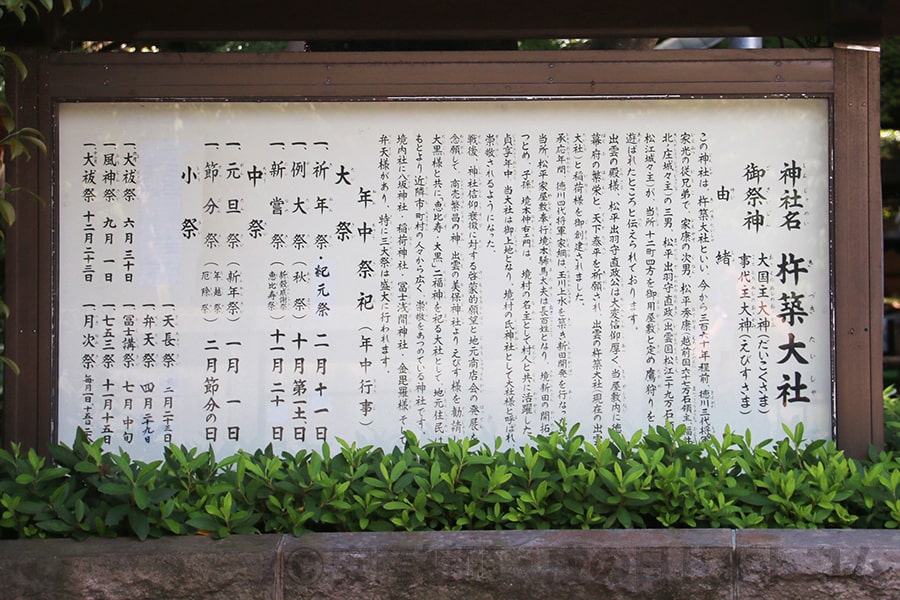 神社名 杵築大社
御祭神 大国主大神(だいこくさま)
事代主大神(えびすさま)
由緒
この神社は、杵築大社といい、今から三百六十年程前、徳川三代将軍
家光の従兄弟で、家康の次男、松平秀康(越前国六十七万石領主、福井
北ノ庄城々主)の三男、松平出羽守直政(出雲国松江二十九万石
松江城々主)が、当所十二町四方を御用屋敷と定め鷹狩りを
遊ばれたところと伝えられております。
出雲の殿様、松平出羽守直政公は大変信仰厚く、当屋敷内に徳
幕府の繁栄と、天下泰平を祈願され、出雲の杵築大社(現在の出雲
大社)と稲荷様を御創建されました。
承応年間、徳川四代将軍家綱は、玉川上水を築き新田開発を行な
当所松平家屋敷奉行境本絺馬太夫は長百姓となり、境新田の開拓
つとめ、子孫、境本仲右ヱ門は、境村の名主として村人と共に活躍した
貞享年中、当大社は御上地となり、境村の氏神社として大社様と呼ばれ
崇敬されるようになった。
戦後、神社信仰衰微に対する啓蒙的願望と地元商店会の発展
念願して、商売繁昌の神、出雲の美保神社より、えびす様を勧請
大黒様と共に、恵比寿・大黒、二福神を祀る大社として、地元住民は
もとより、近隣市町村の人々から広く、崇敬をあつめている神社です。
境内社に八坂神社・稲荷神社・富士浅間神社・金毘羅様・
弁天様があり、特に三大祭は盛大に行われます。
年中祭祀(年中行事)
大祭
一、祈年祭・紀元祭 二月十一日
一、例大祭(秋祭) 十月第一土日
一、新嘗祭(新穀感謝祭 恵比寿祭) 十一月二十
中祭
一、元旦祭(新年祭) 一月一日
一、節分祭(年越祭 厄除祭) 二月節分の日
小祭
一、天長祭 二月二十三日
一、弁天祭 四月二十九日
一、大祓祭 六月三十日
一、冨士講祭 七月中旬
一、風神祭 九月一日
一、七五三祭 十一月十五
一、大祓祭 十二月二十三日
一、月次祭 毎月一日十五日